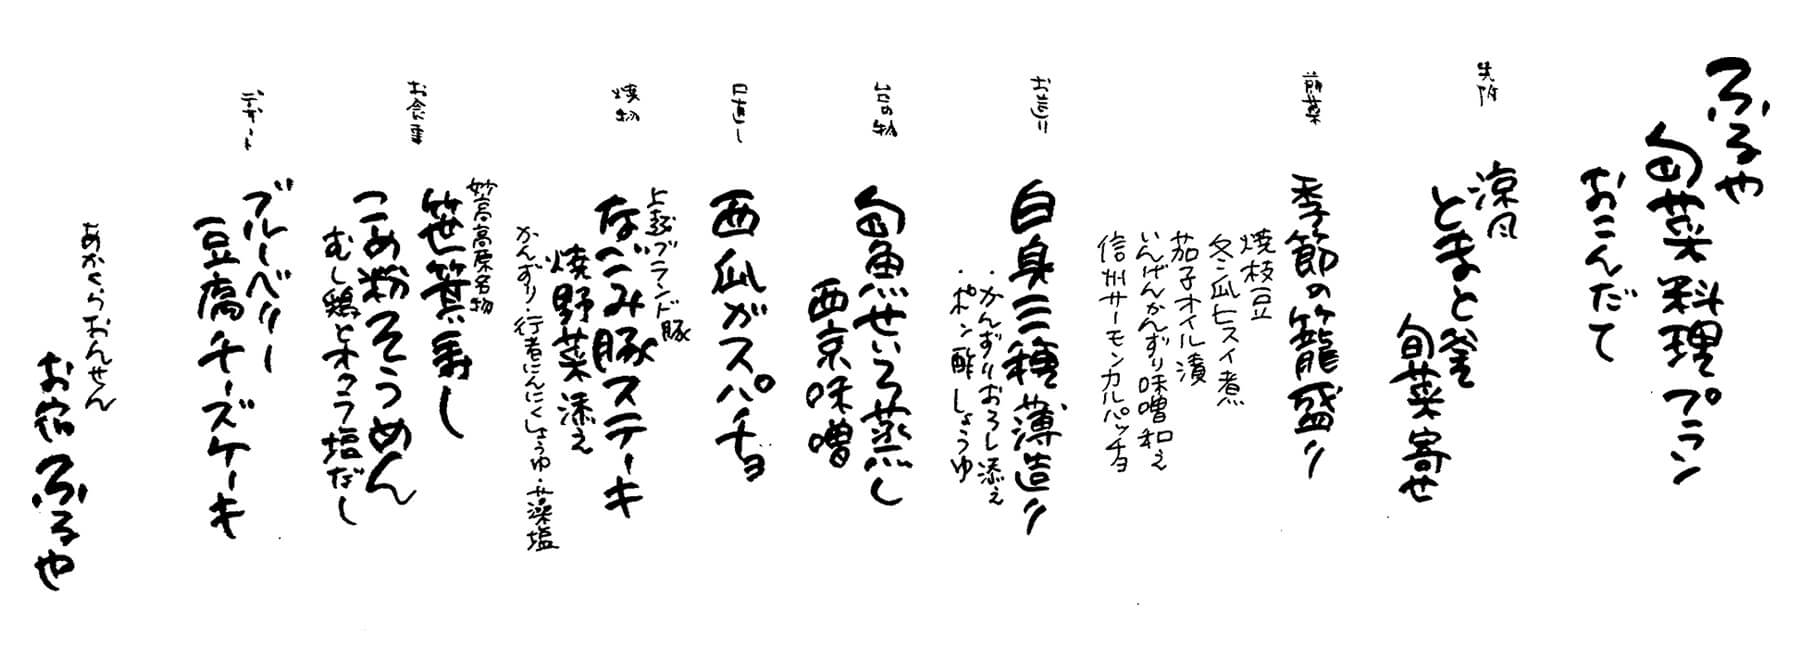 ふるや
旬菜料理プラン
おこんだて
先附
涼風
とまと釜
旬菜寄せ
前菜
季節の籠盛り
焼枝豆
冬瓜ヒスイ煮
茄子オイル漬
いんげんかんずり味噌和え
信州サーモンカルパッチョ
お造り
白身三種薄造り
・かんずりおろし添え
・ポン酢しょうゆ
台の物
旬魚せいろ蒸し
西京味噌
口直し
西瓜ガスパチョ
焼物
上越ブランド豚
なごみ豚ステーキ
焼野菜添え
かんずり・行者にんにくしょうゆ・藻塩
お食事
妙高高原名物
笹寿し
こめ粉そうめん
むし鶏とオクラ塩だし
デザート
ブルーベリー
豆腐チーズケーキ
あかくらおんせん
お宿ふるや